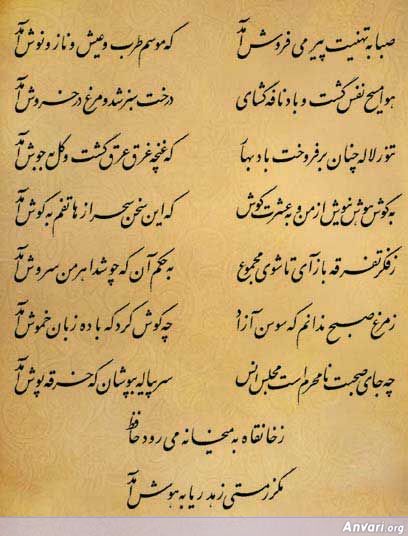 صبا به تهنیت پیر می فروش آمد که موسم طرب و عیش و ناز و نوش آمد
هوا مسیح نفس گشت و باد نافه گشای درخت سبز شد و مرغ در خروش آمد
تنور لاله چنان بر فروخت باد بهار که غنچه غرق عرق گشت و گل به جوش آمد
به گوش هوش نیوش از من و به عشرت کوش که این سخن سحر از هاتفم به گوش آمد
ز فکر تفرقه باز آی تا شوی مجموع به حکم آن که چو شد اهرمن سروش آمد
ز مرغ صبح ندانم که سوسن آزاد چه گوش کرد که با ده زبان خموش آمد
چه جای صحبت نامحرم است مجلس انس سر پیاله بپوشان که خرقه پوش آمد
ز خانقاه به میخانه می رود حافظ
مگر ز مستی زهد ریا به هوش آمد
Anvari.org